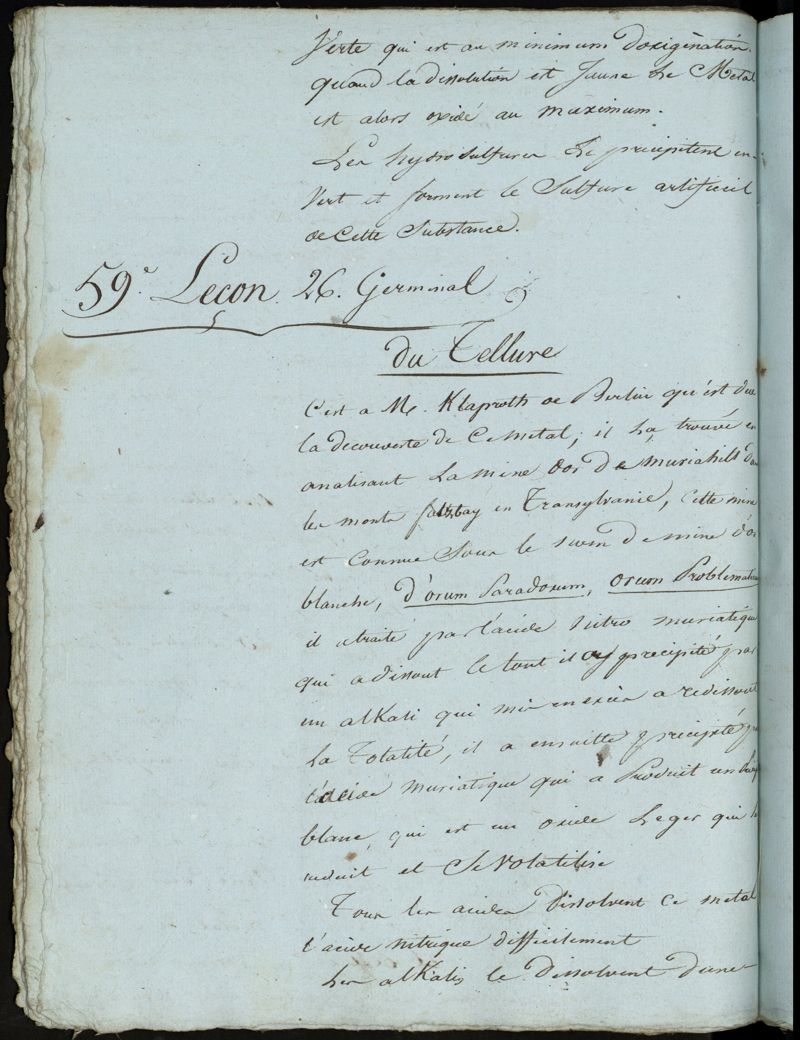 Verte qui est au minimum d'oxigènation.
quand la dissolution est Jaune Le Metal
est alors oxidé au maximum.
Les hydrosulfures Le precipitent en
Vert et forment le Sulfure artificiel
de Cette Substance.
59.e Leçon. 26. Germinal
du Tellure
C'est a Mr. Klaproth de Berlin qu'est due
la decouverte de Ce metal; il l'a trouvé en
analisant La mine d'or De muriahilf dans
les monts fatzbay en Transylvanie, Cette mine
est Connue Sous le nom de mine d'or
blanche, d'orum Paradoxum, orum Problematicum
il a traité par l'acide nitro muriatique
qui a dissout le tout il a precipité par
un alKali qui mis en excès a redissout
La Totalité, il a ensuitte precipité par
l'acide muriatique qui a Produit un
blanc, qui est un oxide Leger qui se
reduit et Se Volatilise
Tous les acides Dissolvent Ce metal
l'acide nitrique difficilement
Les alKalis le Dissolvent D'une